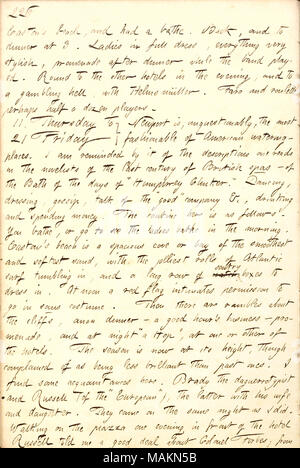 226
Easton's Pond, and had a bathe. Back, and to
dinner at 3. Ladies in full dress, everything very
stylish, promenade after dinner while the band played.
Round to the other hotels in the evening, and to
a gambling hell, with Helmsmüller. Faro and roulette
perhaps half a dozen players.
Thursday to August is, unquestionably, the most
21 Friday fashionable of American watering-
places. I am reminded by it of the descriptions one reads
in the novelists of the last century of British spas - of
the Bath of the days of Humphrey Clinker. Dancing,
dressing, gossip, talk of the good company &c, drinking
and spending money. The routine here is as follows.
You bathe, or go to see the ladies bathe in the morning.
Easton's beach is a spacious cove or bay of the smoothest
and softest sand, with the jolliest rolls of Atlantic
surf tumbling in, and a long row of sentry boxes to
dress in. At noon a red flag intimates permission to
go in sans costume. Then there are rambles about
the cliffs, anon dinner - a good hour's business - pro-
menade, and at night "a hop", at one or other of
the hotels. The season is now at its height, though
complained of as being less brilliant than past ones. I
find some acquaintances here. Brady the daguerreotypist
and Russell (of the European), the latter with his wife
and daughter. They came on the same night as I did.
Walking on the piazza one evening in front of the hotel
Russell told me a good deal about Colonel Forbes; from
alamy
MAKN5B